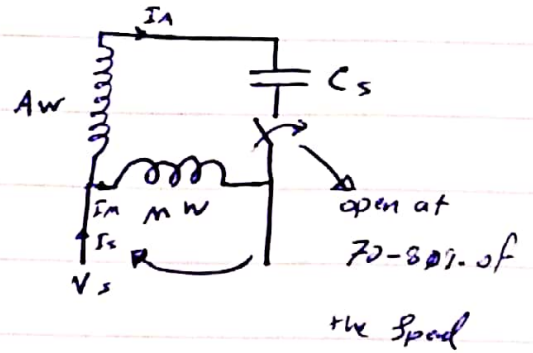 IA
AW
Cs
IM
MW
Is
Vs
open at
70-80%. of
the Speed